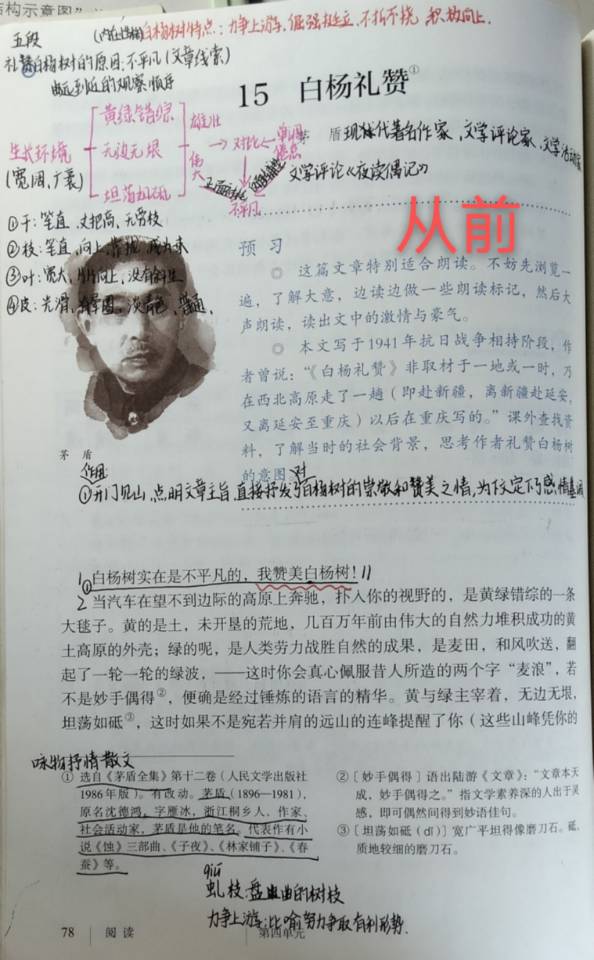 结构示意图"
五段
(内在结构)白杨树特点：力争上游、倔强挺立、不折不挠、积极向上.
礼赞白杨树的原因：不平凡(文章线索)
由远到近的观察顺序
15 白杨礼赞①
生长环境
(宽阔,广袤)
黄绿错综
无边无垠
坦荡如砥
雄壮
伟大
→对比←
单调
倦怠
不平凡
茅 盾 现当代著名作家、文学评论家、文学活动家
文学评论《夜读偶记》
从前
①干：笔直,丈把高,无旁枝
②枝：笔直,向上,靠拢,成为一束
③叶：宽大,片片向上,没有斜生
④皮：光滑,有晕圈,淡青色,普通,
预 习
◎ 这篇文章特别适合朗读。不妨先浏览一
遍，了解大意，边读边做一些朗读标记，然后大
声朗读，读出文中的激情与豪气。
◎ 本文写于1941年抗日战争相持阶段，作
者曾说：“《白杨礼赞》非取材于一地或一时，乃
在西北高原走了一趟（即赴新疆，离新疆赴延安，
又离延安至重庆）以后在重庆写的。”课外查找资
料，了解当时的社会背景，思考作者礼赞白杨树
的意图。
茅 盾
作用 对
①开门见山,点明文章主旨,直接抒发了白杨树的崇敬和赞美之情,为下文定下了感情基调
1 白杨树实在是不平凡的，我赞美白杨树！
①
2 当汽车在望不到边际的高原上奔驰，扑入你的视野的，是黄绿错综的一条
大毯子。黄的是土，未开垦的荒地，几百万年前由伟大的自然力堆积成功的黄
土高原的外壳；绿的呢，是人类劳力战胜自然的成果，是麦田，和风吹送，翻
起了一轮一轮的绿波，——这时你会真心佩服昔人所造的两个字“麦浪”，若
不是妙手偶得②，便确是经过锤炼的语言的精华。黄与绿主宰着，无边无垠，
坦荡如砥③，这时如果不是宛若并肩的远山的连峰提醒了你（这些山峰凭你的
咏物抒情散文
① 选自《茅盾全集》第十二卷（人民文学出版社
1986年版）。有改动。茅盾（1896—1981），
原名沈德鸿，字雁冰，浙江桐乡人，作家、
社会活动家，茅盾是他的笔名。代表作有小
说《蚀》三部曲、《子夜》、《林家铺子》、《春
蚕》等。
② ［妙手偶得］语出陆游《文章》：“文章本天
成，妙手偶得之。”指文学素养深的人出于灵
感，即可偶然间得到妙语佳句。
③ ［坦荡如砥（dǐ）］宽广平坦得像磨刀石。砥，
质地较细的磨刀石。
qiú
虬枝：盘曲的树枝
力争上游：比喻努力争取有利形势.
78 阅 读 第四单元